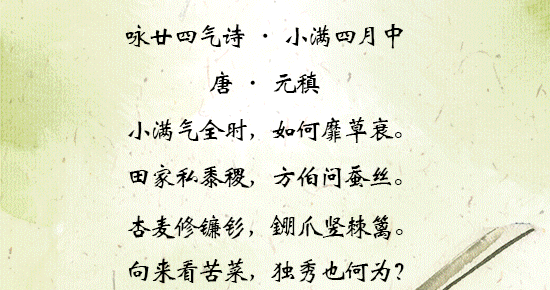 咏廿四气诗 · 小满四月中
唐 · 元稹
小满气全时，如何靡草衰。
田家私黍稷，方伯问蚕丝。
杏麦修镰钐，錋爪竖棘篱。
向来看苦菜，独秀也何为？